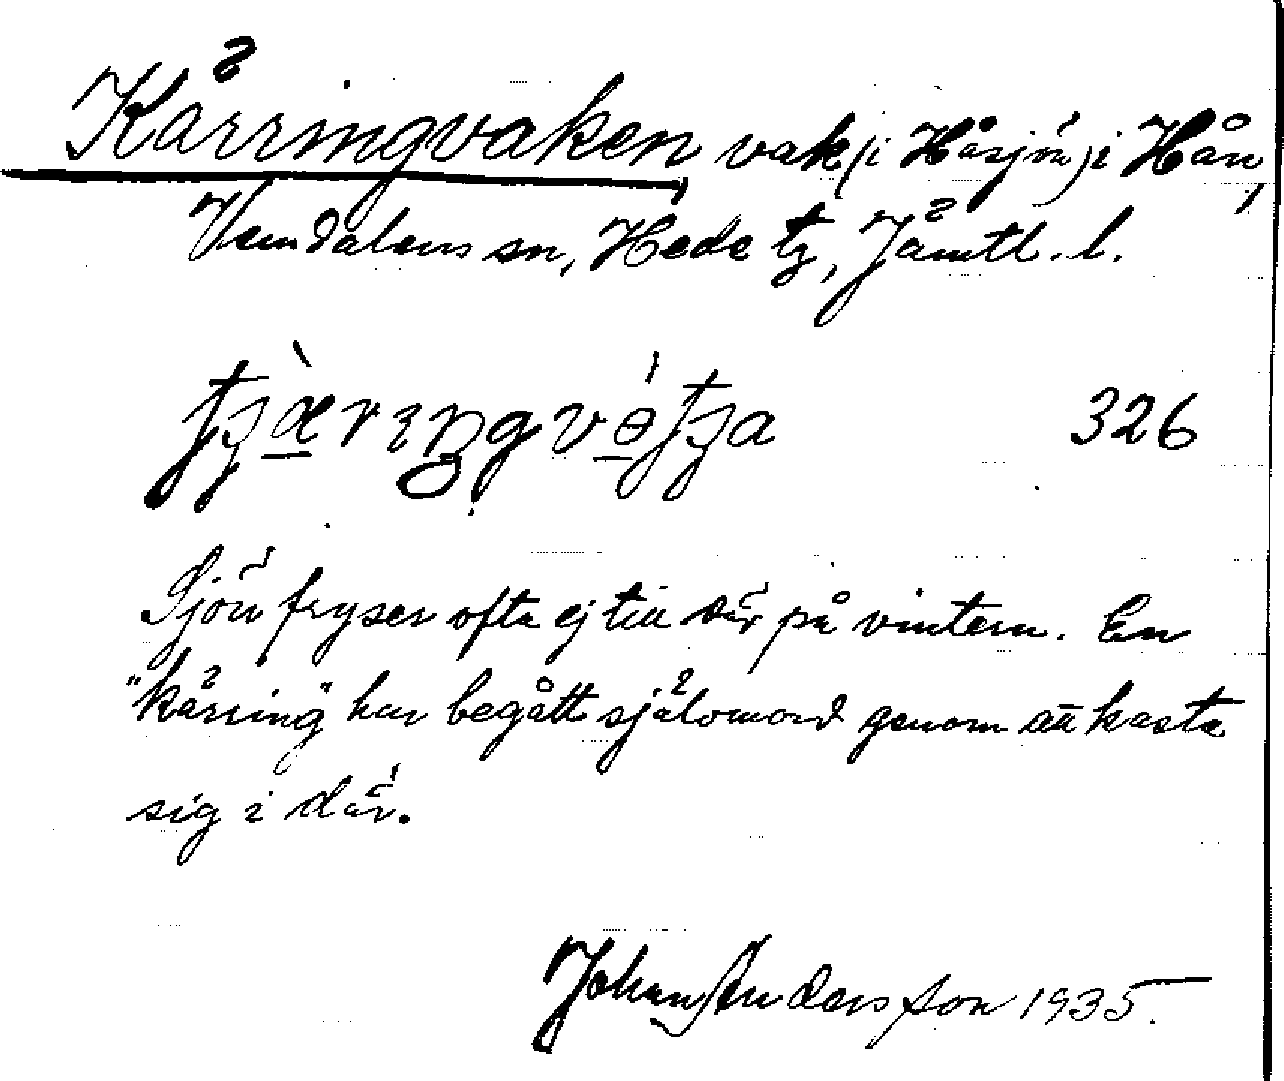 Kärringvaken, vak (i Håsjön) i Hån,
Vemdalens sn, Hede tg, Jämtl. l.
326
Sjön fryser ofta ej till där på vintern. En
"kärring" har begått självmord genom att kasta
sig i där.
Johan Andersson 1935.